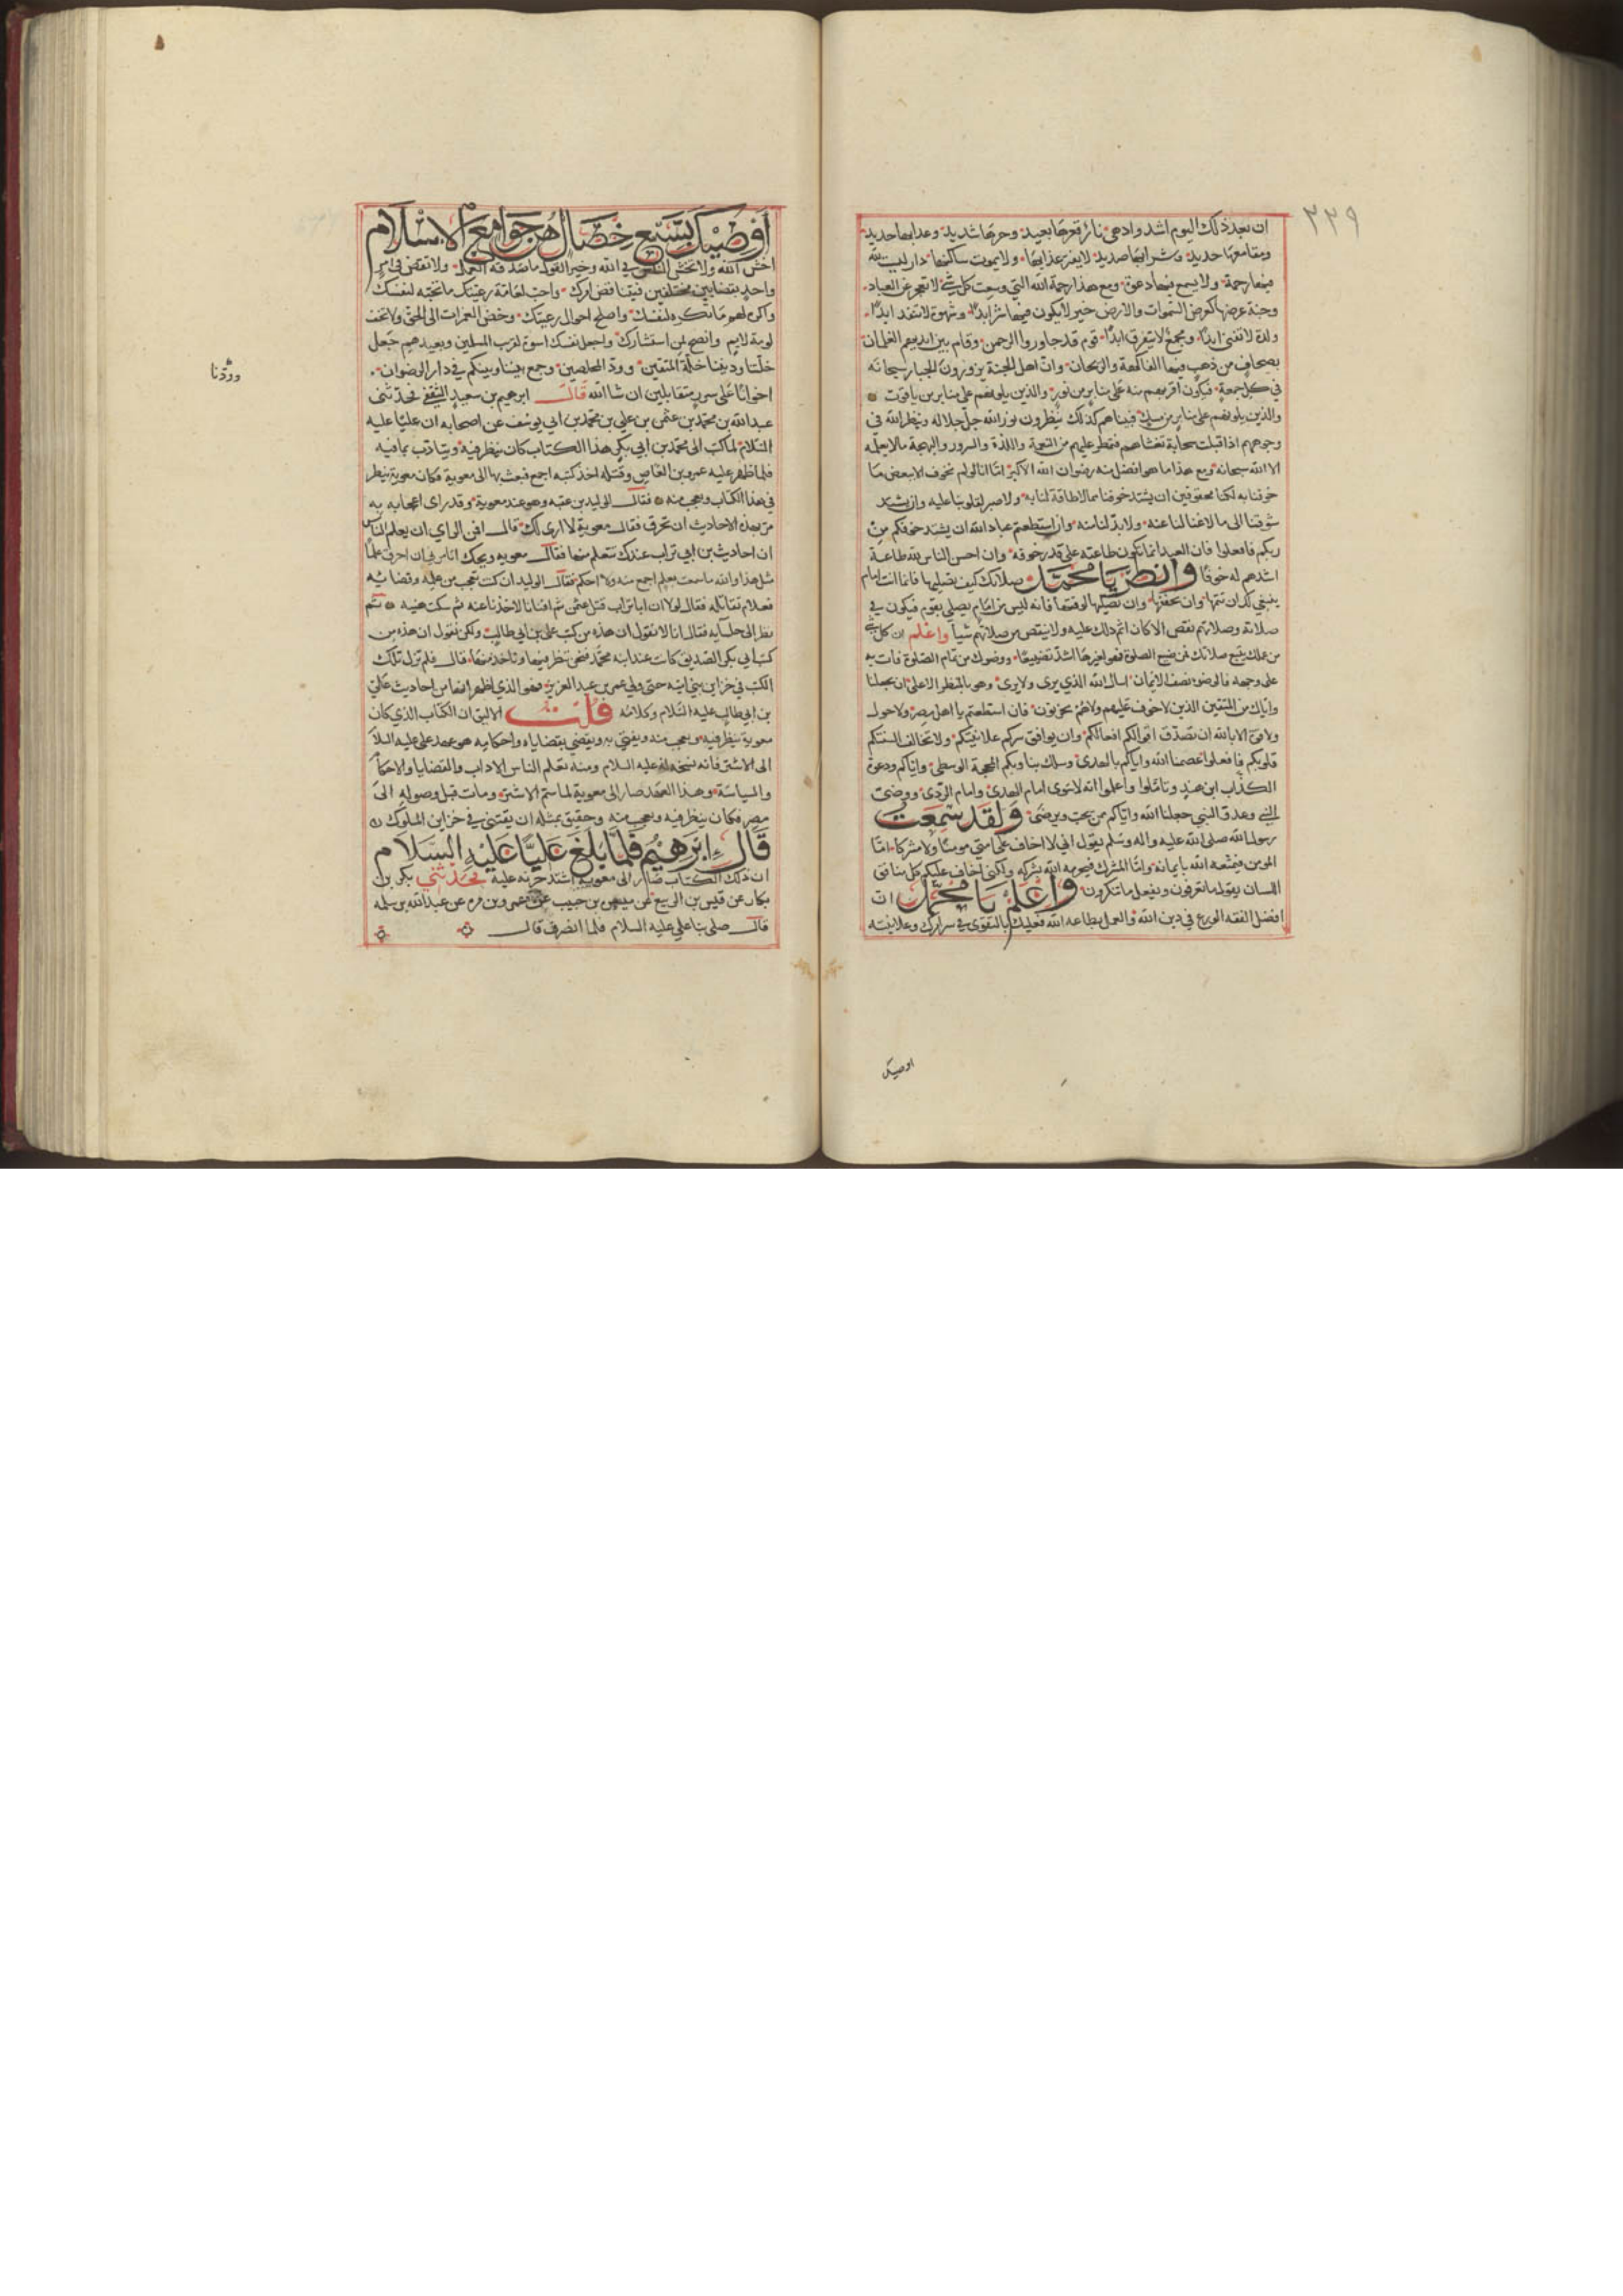 ٣٣٩
ان بعد ذلك اليوم اشد وادهى نار قعرها بعيد وحرها شديد وعذابها جديد
ومقامعها حديد وشرابها صديد لا يفتر عذابها ولا يموت ساكنها دار ليست لله
فيها رحمة ولا يسمع فيها دعوة ومع هذا رحمة الله التي وسعت كل شيء لا تعجز عن العباد
وجنة عرضها كعرض السموات والارض خير لا يكون فيها شر ابدا وشهوة لا تنفد ابدا
ولذة لا تفنى ابدا ومجمع لا يتفرق ابدا قوم قد جاوروا الرحمن وقام بين ايديهم الغلمان
بصحاف من ذهب فيها الفاكهة والريحان وان اهل الجنة يزورون الجبار سبحانه
في كل جمعة فيكون اقربهم منه على منابر من نور والذين يلونهم على منابر من ياقوت
والذين يلونهم على منابر من مسك فبيناهم كذلك ينظرون نور الله جل جلاله وينظر الله في
وجوههم اذ اقبلت سحابة تغشاهم فتمطر عليهم من النعمة واللذة والسرور والبهجة مالا يعلمه
الا الله سبحانه ومع هذا ما هو افضل منه رضوان الله الاكبر امّا انا لو لم نخوف الا ببعض ما
خوفنا به لكنا محقوقين ان يشتد خوفنا مما لا طاقة لنا به ولا صبر لقلوبنا عليه وان يشتد
شوقنا الى ما لا غنا لنا عنه ولا بد لنا منه وان استطعتم عباد الله ان يشتد خوفكم من
ربكم فافعلوا فان العبد انما تكون طاعته على قدر خوفه وان احسن الناس لله طاعة
اشدهم له خوفا وانظر يا محمد صلاتك كيف تصليها فانما انت امام
ينبغي لك ان تتمها وان تخففها وان تصليها لوقتها فانه ليس من امام يصلي بقوم فيكون في
صلاته وصلاتهم نقص الا كان اثم ذلك عليه ولا ينقص من صلاتهم شيا واعلم ان كل شي
من عملك يتبع صلاتك فمن ضيع الصلوة فهو لغيرها اشد تضييعا ووضوك من تمام الصلوة فات به
على وجهه فالوضو نصف الايمان اسال الله الذي يرى ولا يرى وهو بالمنظر الاعلى ان يجعلنا
واياك من المتقين الذين لا خوف عليهم ولاهم يحزنون فان استطعتم يا اهل مصر ولا حول
ولا قوة الا بالله ان تصدق اقوالكم افعالكم وان يوافق سركم علانيتكم ولا تخالف السنتكم
قلوبكم فافعلوا عصمنا الله واياكم بالهدى وسلك بنا وبكم المحجة الوسطى واياكم ودعوة
الكذاب ابن هند وتاملوا واعلموا انه لا سوى امام الهدى وامام الردى ووصي
النبي وعدو النبي جعلنا الله واياكم ممن يحب ويرضى ولقد سمعت
رسول الله صلى الله عليه واله وسلم يقول اني لا اخاف على امتي مومنا ولا مشركا امّا
المومن فيمنعه الله بايمانه وامّا المشرك فيحرمه الله بشركه ولكني اخاف عليكم كل منافق
اللسان يقول ما تعرفون ويفعل ما تنكرون واعلم يا محمد ان
افضل الفقه الورع في دين الله والعمل بطاعة الله فعليك بالتقوى في سر امرك وعلانيته
اوصيك
اوصيك بسبع خصال هن جوامع الاسلام
اخش الله ولا تخش الناس في الله وخير القول ما صدقه العمل ولا تقض في امر
واحد بقضايين مختلفين فيتناقض امرك واحب لعامة رعيتك ما تحبه لنفسك
واكره لهم ما تكره لنفسك واصلح احوال رعيتك وخض الغمرات الى الحق ولا تخف
لومة لايم وانصح لمن استشارك واجعل نفسك اسوة لقرب المسلمين وبعيدهم جعل
خلتنا وديننا خلة المتقين وود المخلصين وجمع بيننا وبينكم في دار الرضوان
وودّنا
اخوانا على سرر متقابلين ان شا الله قال ابرهيم بن سعيد الثقفي فحدثني
عبد الله بن محمد بن عثمن بن علي بن محمد بن ابي يوسف عن اصحابه ان عليّا عليه
السّلام لما كتب الى محمد بن ابي بكر هذا الكتاب كان ينظر فيه ويتادب بما فيه
فلما ظهر عليه عمرو بن العاص وقتله اخذ كتبه اجمع فبعث بها الى معوية فكان معوية ينظر
في هذا الكتاب ويعجب منه فقال الوليد بن عقبه وهو عند معوية وقد راى اعجابه به
مر بهذه الاحاديث ان تحرق فقال معوية لا ارى لك قال افمن الراي ان يعلم الناس
ان احاديث بن ابي تراب عندك تتعلم منها فقال معويه ويحك اتامرني ان احرق علما
مثل هذا والله ما سمعت بعلم اجمع منه ولا احكم فقال الوليد ان كنت تعجب من علمه وقضائه
فعلام تقاتله فقال لولا ان ابا تراب قتل عثمن ثم افتانا لاخذنا عنه ثم سكت هنيه ثم
نظر الى جلسايه فقال انا لا نقول ان هذه من كتب علي بن ابي طالب ولكن نقول ان هذه من
كتب ابي بكر الصديق كانت عند ابنه محمد فنحن ننظر فيها وناخذ منها قال فلم تزل تلك
الكتب في خزاين بني اميه حتى ولي عمر بن عبد العزيز فهو الذي اظهر انها من احاديث علي
بن ابي طالب عليه السّلام وكلامه قلت الاليق ان الكتاب الذي كان
معوية ينظر فيه ويعجب منه ويفتي به ويقضي بقضاياه واحكامه هو عهد علي عليه السلام
الى الاشتر فانه نسخة له عليه السلام ومنه تعلم الناس الاداب والقضايا والاحكام
والسياسة وهذا العهد صار الى معوية لما سم الاشتر ومات قبل وصوله الى
مصر فكان ينظر فيه ويعجب منه وحقيق بمثله ان يقتنى في خزاين الملوك
قال ابرهيم فلما بلغ عليّا عليه السلام
ان ذلك الكتاب صار الى معويه اشتد حزنه عليه فحدثني بكر بن
بكار عن قيس بن الربيع عن ميسره بن حبيب عن عمرو بن مره عن عبد الله بن سلمه
قال صلى بنا علي عليه السلام فلما انصرف قال